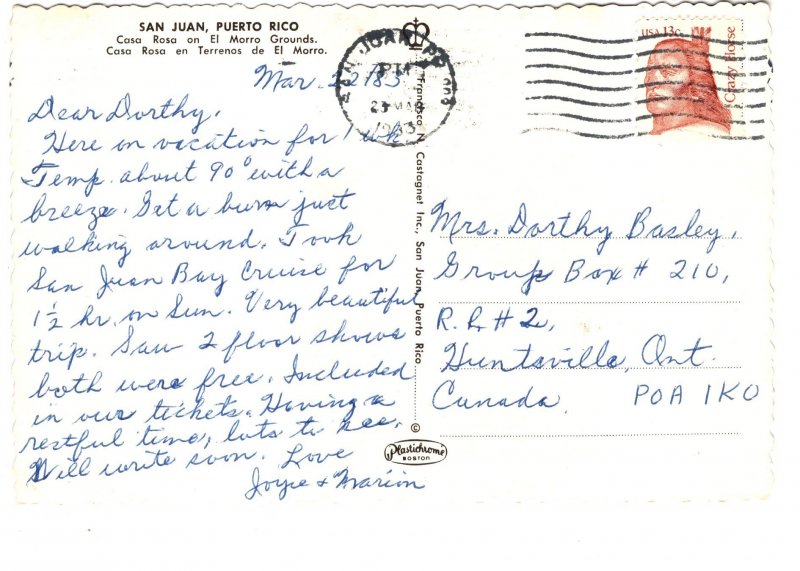 SAN JUAN, PUERTO RICO
Casa Rosa on El Morro Grounds.
Casa Rosa en Terrenos de El Morro.
Mar. 22/83
Dear Dorthy,
Here on vacation for 1 wk.
Temp. about 90° with a
breeze. Get a burn just
walking around. Took
San Juan Bay Cruise for
1½ hr. on Sun. Very beautiful
trip. Saw 2 floor shows
both were free. Included
in our tickets. Having a
restful time, lots to see.
Will write soon. Love
Joyce & Marion
SAN JUAN, PR
PM
23 MAR
1983
USA 13c
Crazy Horse
Francisco N. Castagnet Inc., San Juan, Puerto Rico
©
Plastichrome
BOSTON
Mrs. Dorthy Basley,
Group Box # 210,
R.R. # 2,
Huntsville, Ont.
Canada. POA 1KO